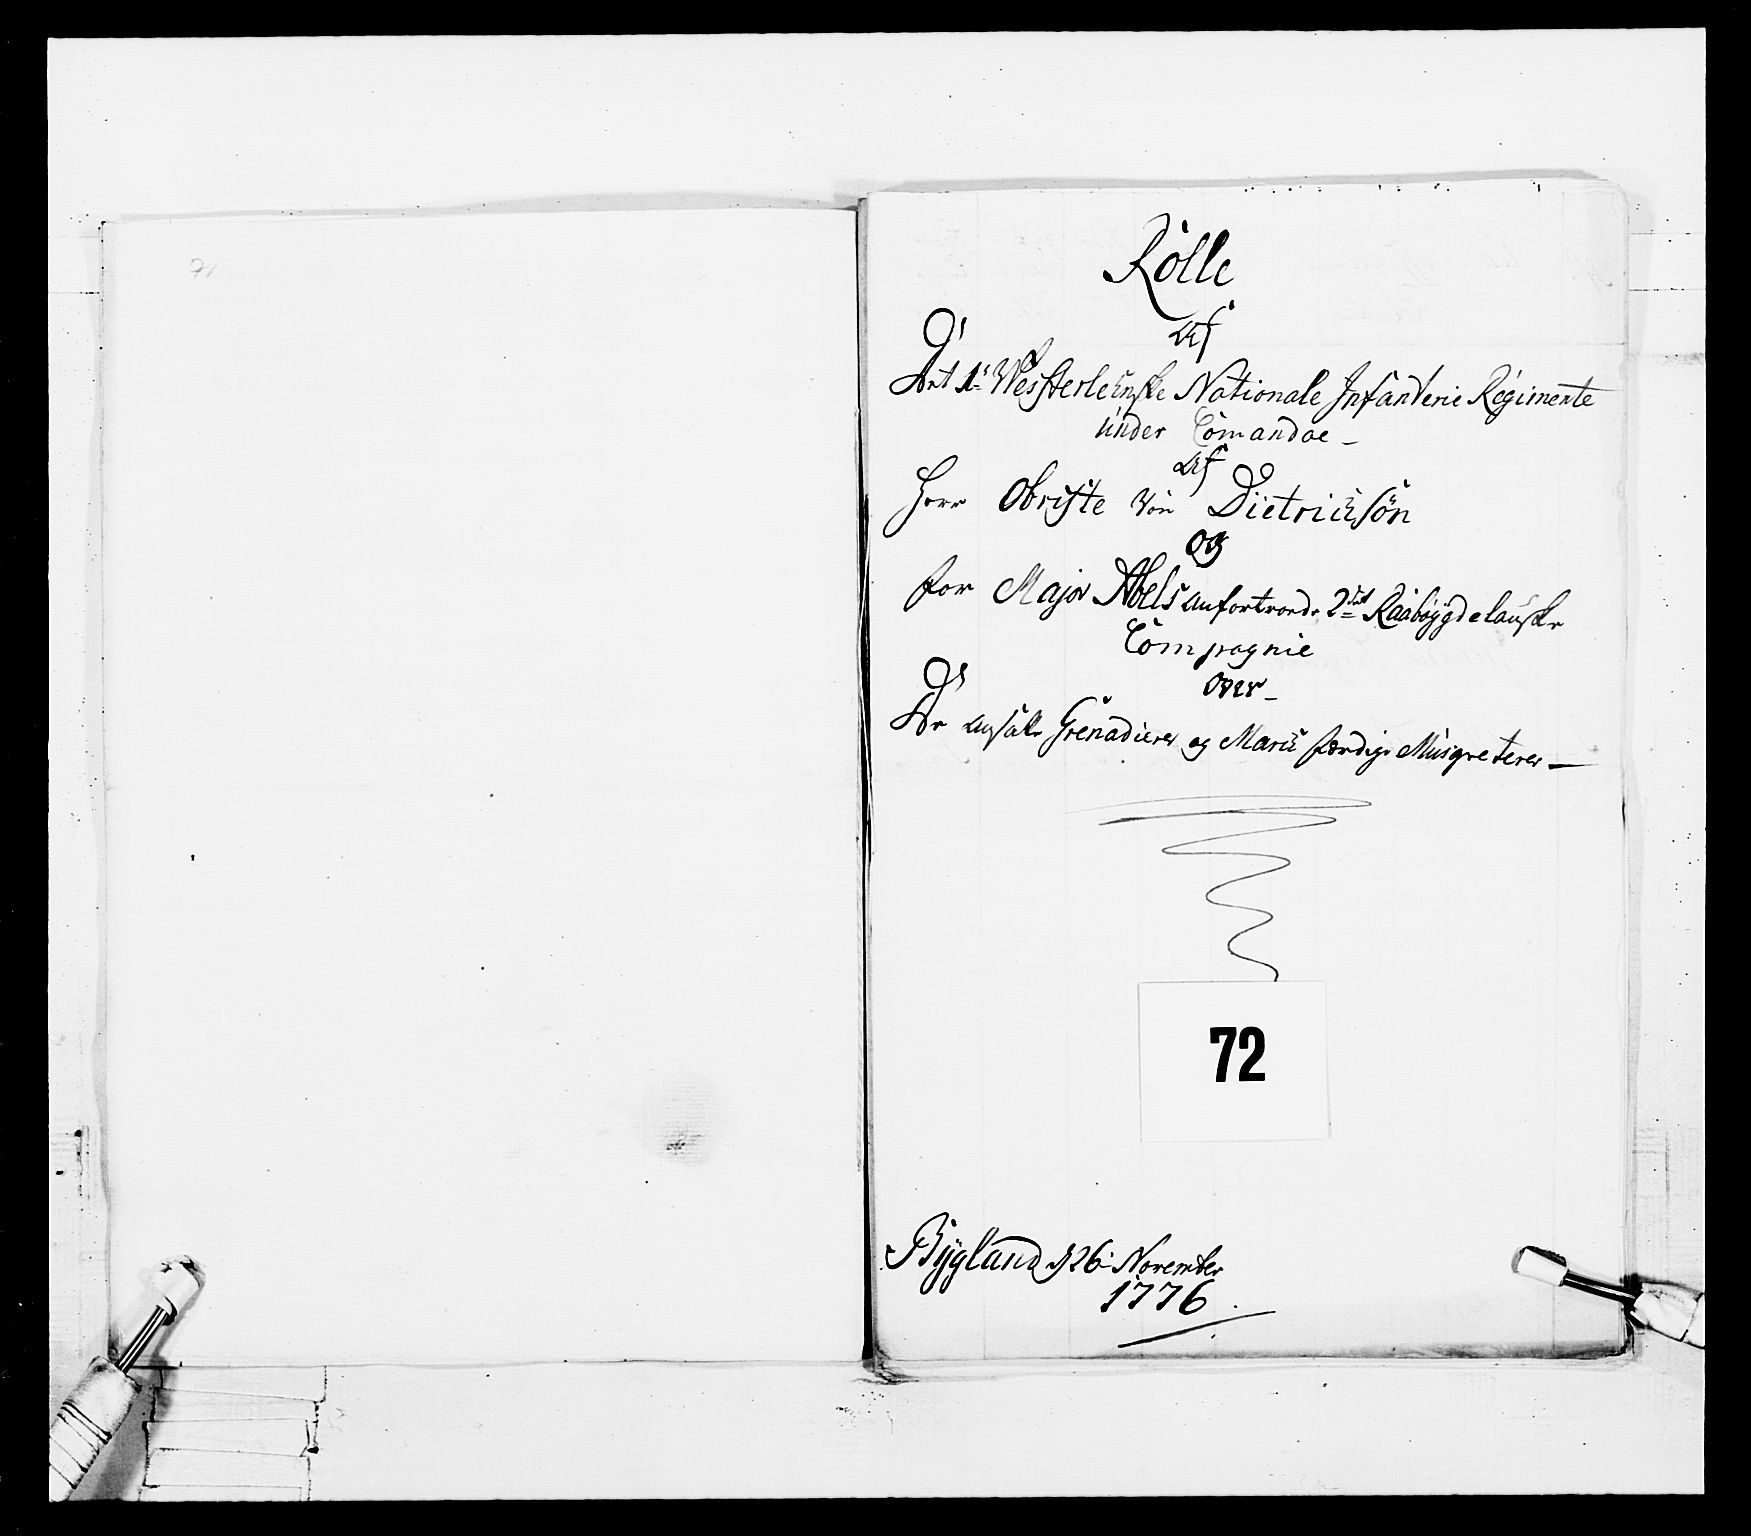 71
Rolle
Af
Det 1te Westerlenske Nationale Infanterie Regimente
under Comandoe -
Af
Herr Obriste Von Dietrichson
og
for Major Abels anfortroede 2det Raabøygdelauske
Compagnie
Over -
De ansatte Grenadierer og March færdige Musqveterer -
72
Bygland d 26 November
1776